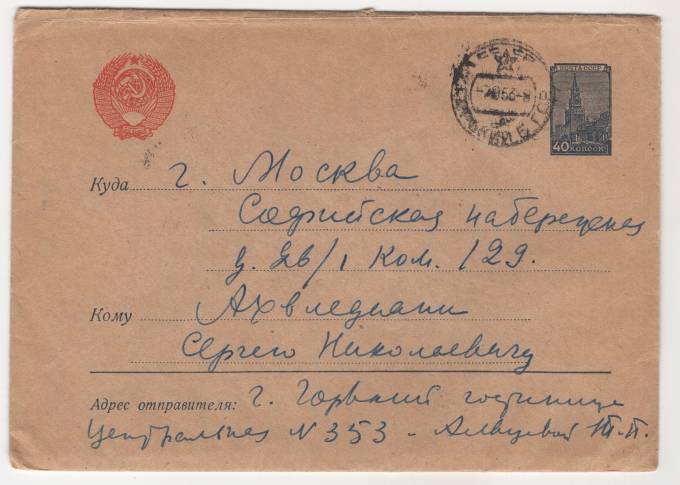 ПОЧТА СССР
40 КОПЕЕК
Куда г. Москва
Софийская набережная
д. 26/1 Ком. 129.
Кому Ахвледиани
Сергею Николаевичу
Адрес отправителя: г. Горький гостиница
Центральная N 353 - Т. П.